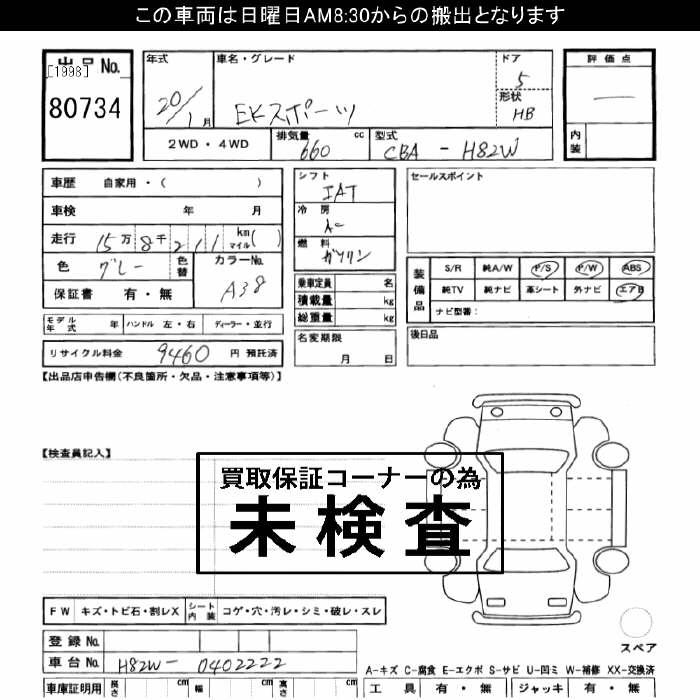 この車両は日曜日AM8:30からの搬出となります
出品No.
[1998]
80734
年式
20/1月
車名・グレード
EKスポーツ
ドア
5
形状
HB
評価点
—
内装
2WD・4WD
排気量
660 cc
型式
CBA - H82W
車歴 自家用・( )
車検 年 月
走行 15万8千211 km マイル( )
色 グレー
色替
カラーNo.
A38
保証書 有・無
シフト
IAT
冷房
燃料
ガソリン
セールスポイント
装備品
S/R 純A/W P/S P/W ABS
純TV 純ナビ 革シート 外ナビ エアB
ナビ型番:
乗車定員 名
積載量 kg
総重量 kg
モデル年式 年 ハンドル 左・右 ディーラー・並行
名変期限
月 日
後日品
リサイクル料金 9460 円 預託済
【出品店申告欄(不良箇所・欠品・注意事項等)】
【検査員記入】
買取保証コーナーの為
未検査
FW キズ・トビ石・割レX シート内装 コゲ・穴・汚レ・シミ・破レ・スレ
登録No.
車台No. H82W- 0402222
スペア
A-キズ C-腐食 E-エクボ S-サビ U-凹ミ W-補修 XX-交換済
車庫証明用 長さ cm 幅 cm 高さ cm
工具 有・無 ジャッキ 有・無